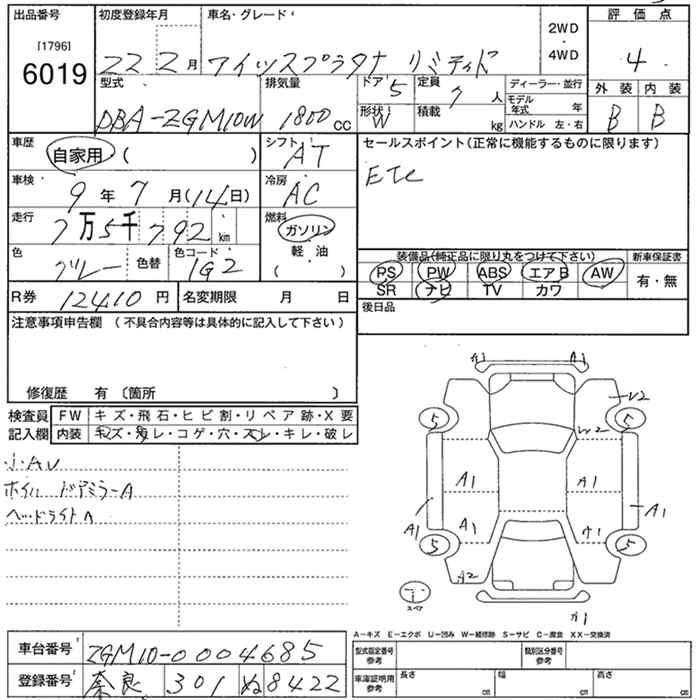 出品番号 初度登録年月 車名・グレード 評価点
[1796]
6019
22 2月 ウイッスプラタナ リミティド 2WD ・ 4WD 4
型式 排気量 ドア 5 定員 7人 ディーラー・並行 外装 内装
DBA-ZGM10W 1800 cc 形状 W 積載 kg モデル年式 年 B B
ハンドル 左・右
車歴 自家用 ( ) シフト AT セールスポイント(正常に機能するものに限ります)
車検 9年7月(14日) 冷房 AC ETC
走行 7万5千792km 燃料 ガソリン
軽・油
色 グレー 色替 色コード 1G2 ( )
装備品(純正品に限り丸をつけて下さい) 新車保証書
PS PW ABS エアB AW 有・無
SR ナビ TV カワ
R券 12410円 名変期限 月 日
後日品
注意事項申告欄 (不具合内容等は具体的に記入して下さい)
修復歴 有 〔箇所 〕
検査員 FW キズ・飛石・ヒビ割・リペア跡・X要
記入欄 内装 キズ・汚レ・コゲ・穴・スレ・キレ・破レ
小AU
ホイル ドアミラーA
ヘッドライトA
A1 A1
U2
5 5
W2
A1 A1
A1 A1
A1 A1
5 5
A2
スペア
A1
A-キズ E-エクボ U-凹み W-補修跡 S-サビ C-腐食 XX-交換済
車台番号 ZGM10-0004685
型式指定番号 参考 類別区分番号 参考
登録番号 奈良 301 ぬ8422
車庫証明用 参考 長さ cm 幅 cm 高さ cm